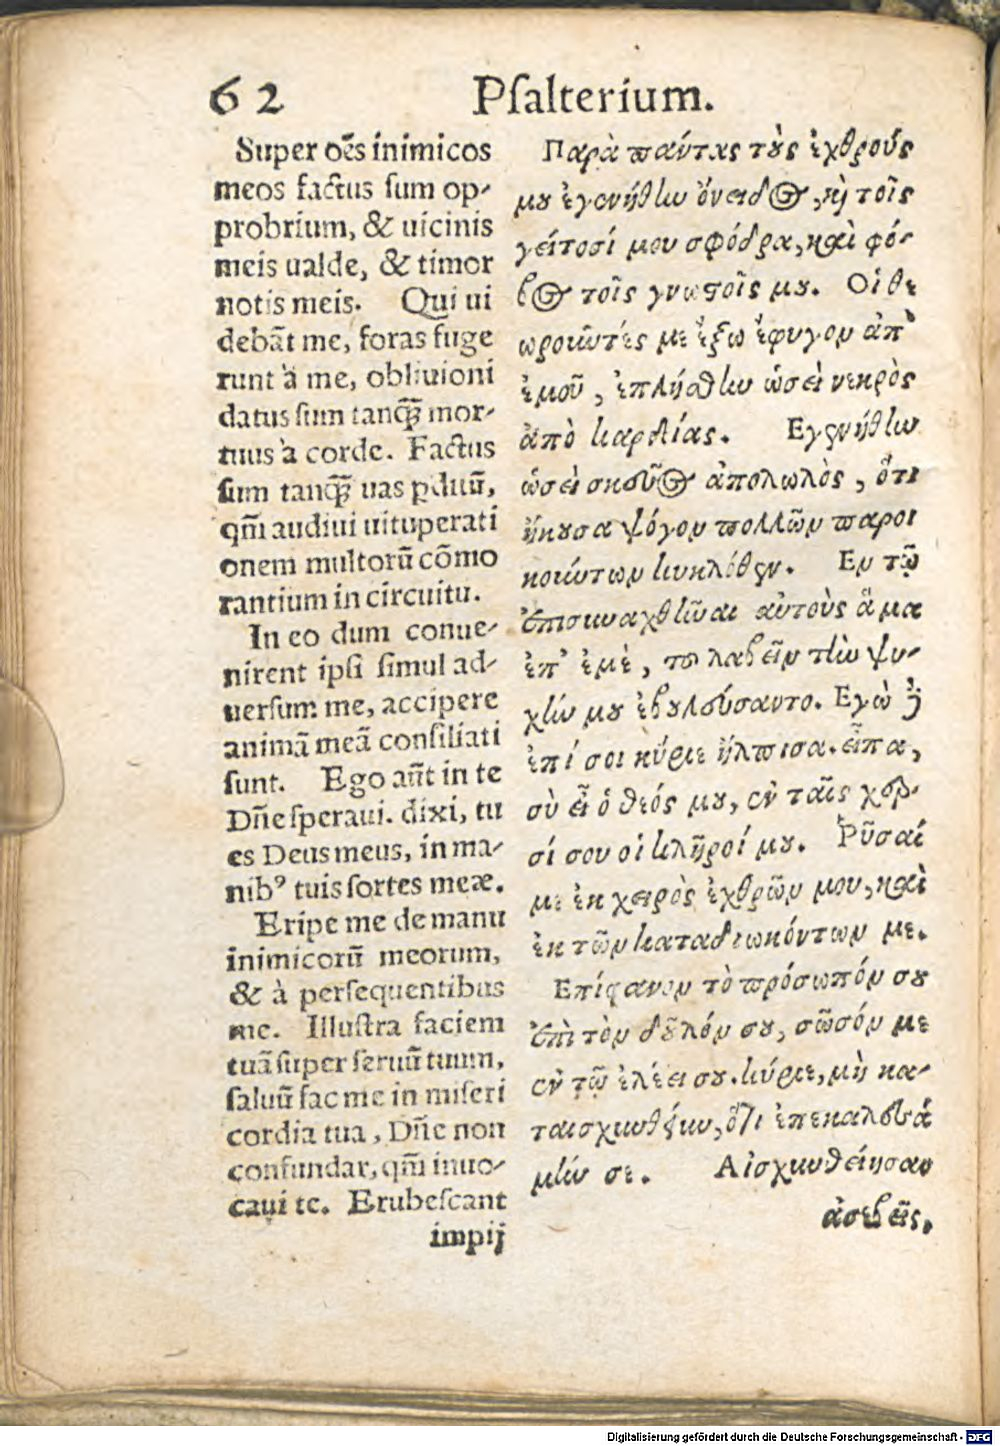 62 Psalterium.
Super oēs inimicos
meos factus sum op-
probrium, & uicinis
meis ualde, & timor
notis meis. Qui ui
debāt me, foras fuge
runt à me, obliuioni
datus sum tanq̃ mor-
tuus à corde. Factus
sum tanq̃ uas pditū,
qm̄ audiui uituperati
onem multorū cōmo
rantium in circuitu.
In eo dum conue-
nirent ipsi simul ad-
uersum me, accipere
animā meā consiliati
sunt. Ego aūt in te
Dñe speraui. dixi, tu
es Deus meus, in ma-
nibꝰ tuis sortes meæ.
Eripe me de manu
inimicorū meorum,
& à persequentibus
me. Illustra faciem
tuā super seruū tuum,
saluū fac me in miseri
cordia tua, Dñe non
confundar, qm̄ inuo-
caui te. Erubescant
impij
Παρὰ πάντας τοὺς ἐχθρούς
μου ἐγενήθην ὄνειδος, καὶ τοῖς
γείτοσί μου σφόδρα, καὶ φό-
βος τοῖς γνωστοῖς μου. Οἱ θε
ωροῦντές με ἔξω ἔφυγον ἀπ'
ἐμοῦ, ἐπλήσθην ὡσεὶ νεκρὸς
ἀπὸ καρδίας. Εγενήθην
ὡσεὶ σκεῦος ἀπολωλὸς, ὅτι
ἤκουσα ψόγον πολλῶν παροι
κούντων κυκλόθεν. Εν τῷ
ἐπισυναχθῆναι αὐτοὺς ἅμα
ἐπ' ἐμὲ, τοῦ λαβεῖν τὴν ψυ-
χήν μου ἐβουλεύσαντο. Εγὼ δὲ
ἐπί σοι κύριε ἤλπισα. εἶπα,
σὺ εἶ ὁ θεός μου, ἐν ταῖς χερ-
σί σου οἱ κλῆροί μου. Ῥῦσαί
με ἐκ χειρὸς ἐχθρῶν μου, καὶ
ἐκ τῶν καταδιωκόντων με.
Επίφανον τὸ πρόσωπόν σου
ἐπὶ τὸν δοῦλόν σου, σῶσόν με
ἐν τῷ ἐλέει σου. κύριε, μὴ κα-
ταισχυνθείην, ὅτι ἐπεκαλεσά
μην σε. Αἰσχυνθείησαν
ἀσεβεῖς,
Digitalisierung gefördert durch die Deutsche Forschungsgemeinschaft - DFG